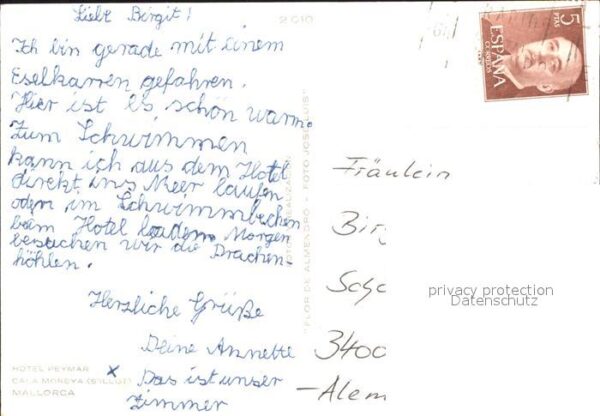 Liebe Birgit!
Ich bin gerade mit einem
Eselkarren gefahren.
Hier ist es schön warm.
Zum Schwimmen
kann ich aus dem Hotel
direkt ins Meer laufen
oder im Schwimmbecken
beim Hotel baden. Morgen
besuchen wir die Drachen-
höhlen.
Herzliche Grüße
Deine Annette
x Das ist unser
Zimmer
HOTEL PEYMAR
CALA MOREYA (S'ILLOT)
MALLORCA
2010
"FLOR DE ALMENDRO" - FOTO JOSE LUIS
5
PTAS
ESPAÑA
CORREOS
Fräulein
Bir
Sch
3400
-Alem
privacy protection
Datenschutz